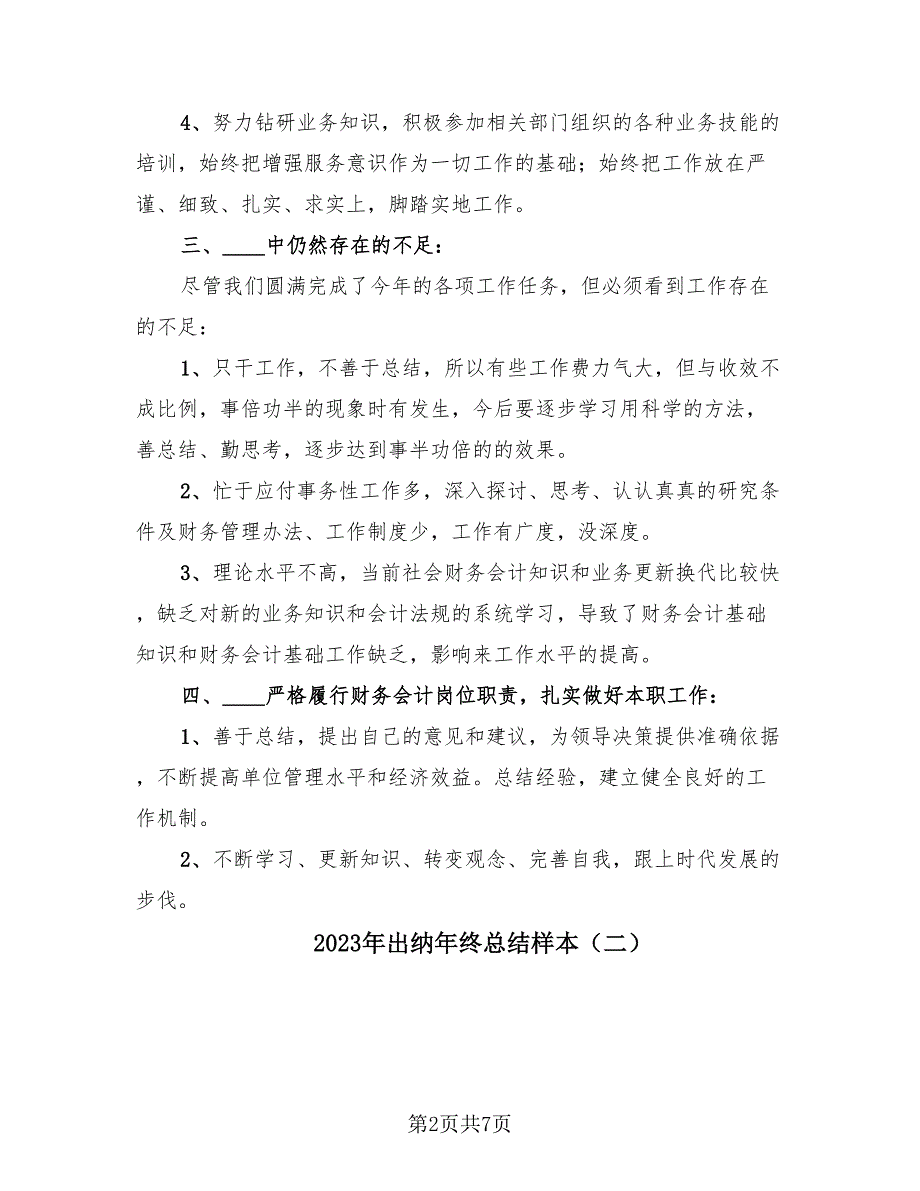 4、努力钻研业务知识，积极参加相关部门组织的各种业务技能的
培训，始终把增强服务意识作为一切工作的基础；始终把工作放在严
谨、细致、扎实、求实上，脚踏实地工作。
三、____中仍然存在的不足：
尽管我们圆满完成了今年的各项工作任务，但必须看到工作存在
的不足：
1、只干工作，不善于总结，所以有些工作费力气大，但与收效不
成比例，事倍功半的现象时有发生，今后要逐步学习用科学的方法，
善总结、勤思考，逐步达到事半功倍的的效果。
2、忙于应付事务性工作多，深入探讨、思考、认认真真的研究条
件及财务管理办法、工作制度少，工作有广度，没深度。
3、理论水平不高，当前社会财务会计知识和业务更新换代比较快
，缺乏对新的业务知识和会计法规的系统学习，导致了财务会计基础
知识和财务会计基础工作缺乏，影响来工作水平的提高。
四、____严格履行财务会计岗位职责，扎实做好本职工作：
1、善于总结，提出自己的意见和建议，为领导决策提供准确依据
，不断提高单位管理水平和经济效益。总结经验，建立健全良好的工
作机制。
2、不断学习、更新知识、转变观念、完善自我，跟上时代发展的
步伐。
2023年出纳年终总结样本（二）
第2页共7页